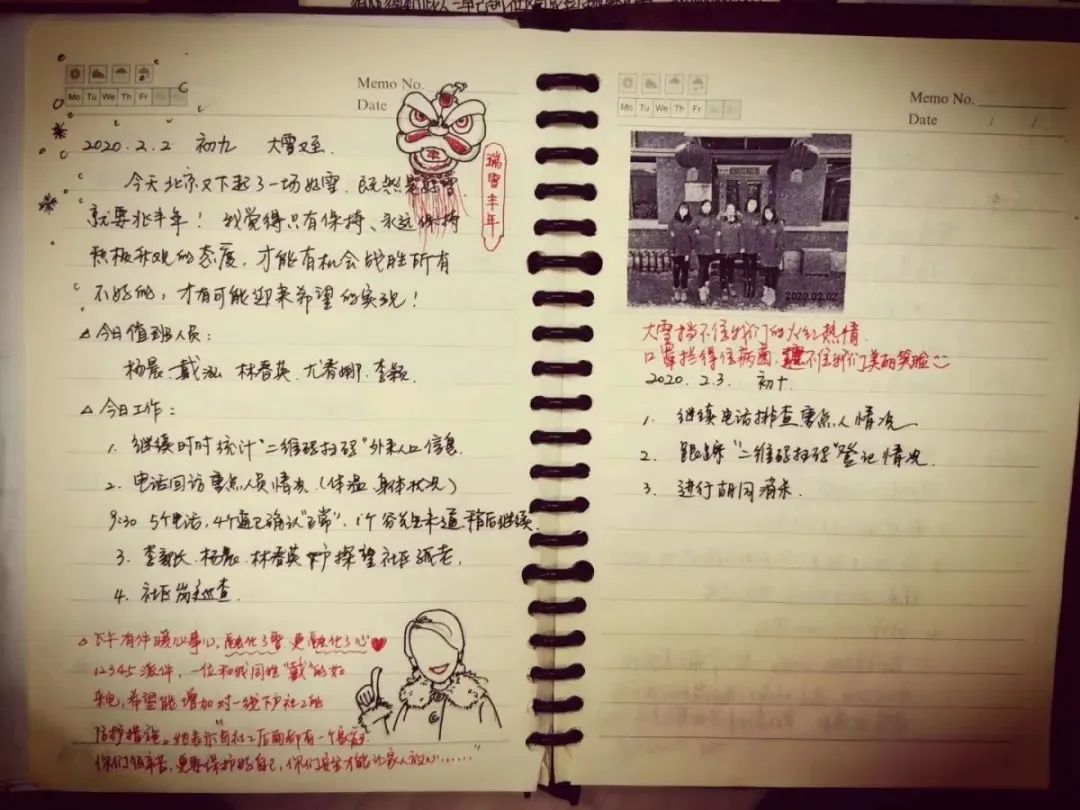 Memo No.
Date
Mo Tu We Th Fr
2020.2.2 初九 大雪又至.
今天北京又下起了一场好雪.既然是好雪.
就要兆丰年！我觉得只有保持、永远保持
积极乐观的态度,才能有机会战胜所有
不好的,才有可能迎来希望的实现！
瑞雪丰年
△今日值班人员：
杨晨.戴泓.林春英.尤春娜.李颖.
△今日工作：
1. 继续时时统计"二维码扫码"外来人口信息.
2. 电话回访重点人员情况.(体温.身体状况)
9:30 5个电话,4个通已确认"正常",1个 未通 稍后继续.
3. 李 长.杨晨.林春英 入户探望社区孤老.
4. 社区岗巡查.
△下午有件暖心事儿,融化了雪.更融化了心
12345派件,一位和我同姓"戴"的女
来电,希望能增加对一线下户社工的
防护措施。她表示"每社工后面都有一个家庭.
你们很辛苦,更要保护好自己,你们安全才能让家人放心……"
Memo No.
Date / /
Mo Tu We Th Fr
2020.02.02
大雪挡不住我们的火红热情.
口罩拦得住病菌.遮不住我们美的笑脸
2020.2.3. 初十.
1. 继续电话排查重点人情况.
2. 跟踪"二维码扫码"登记情况.
3. 进行胡同消杀.